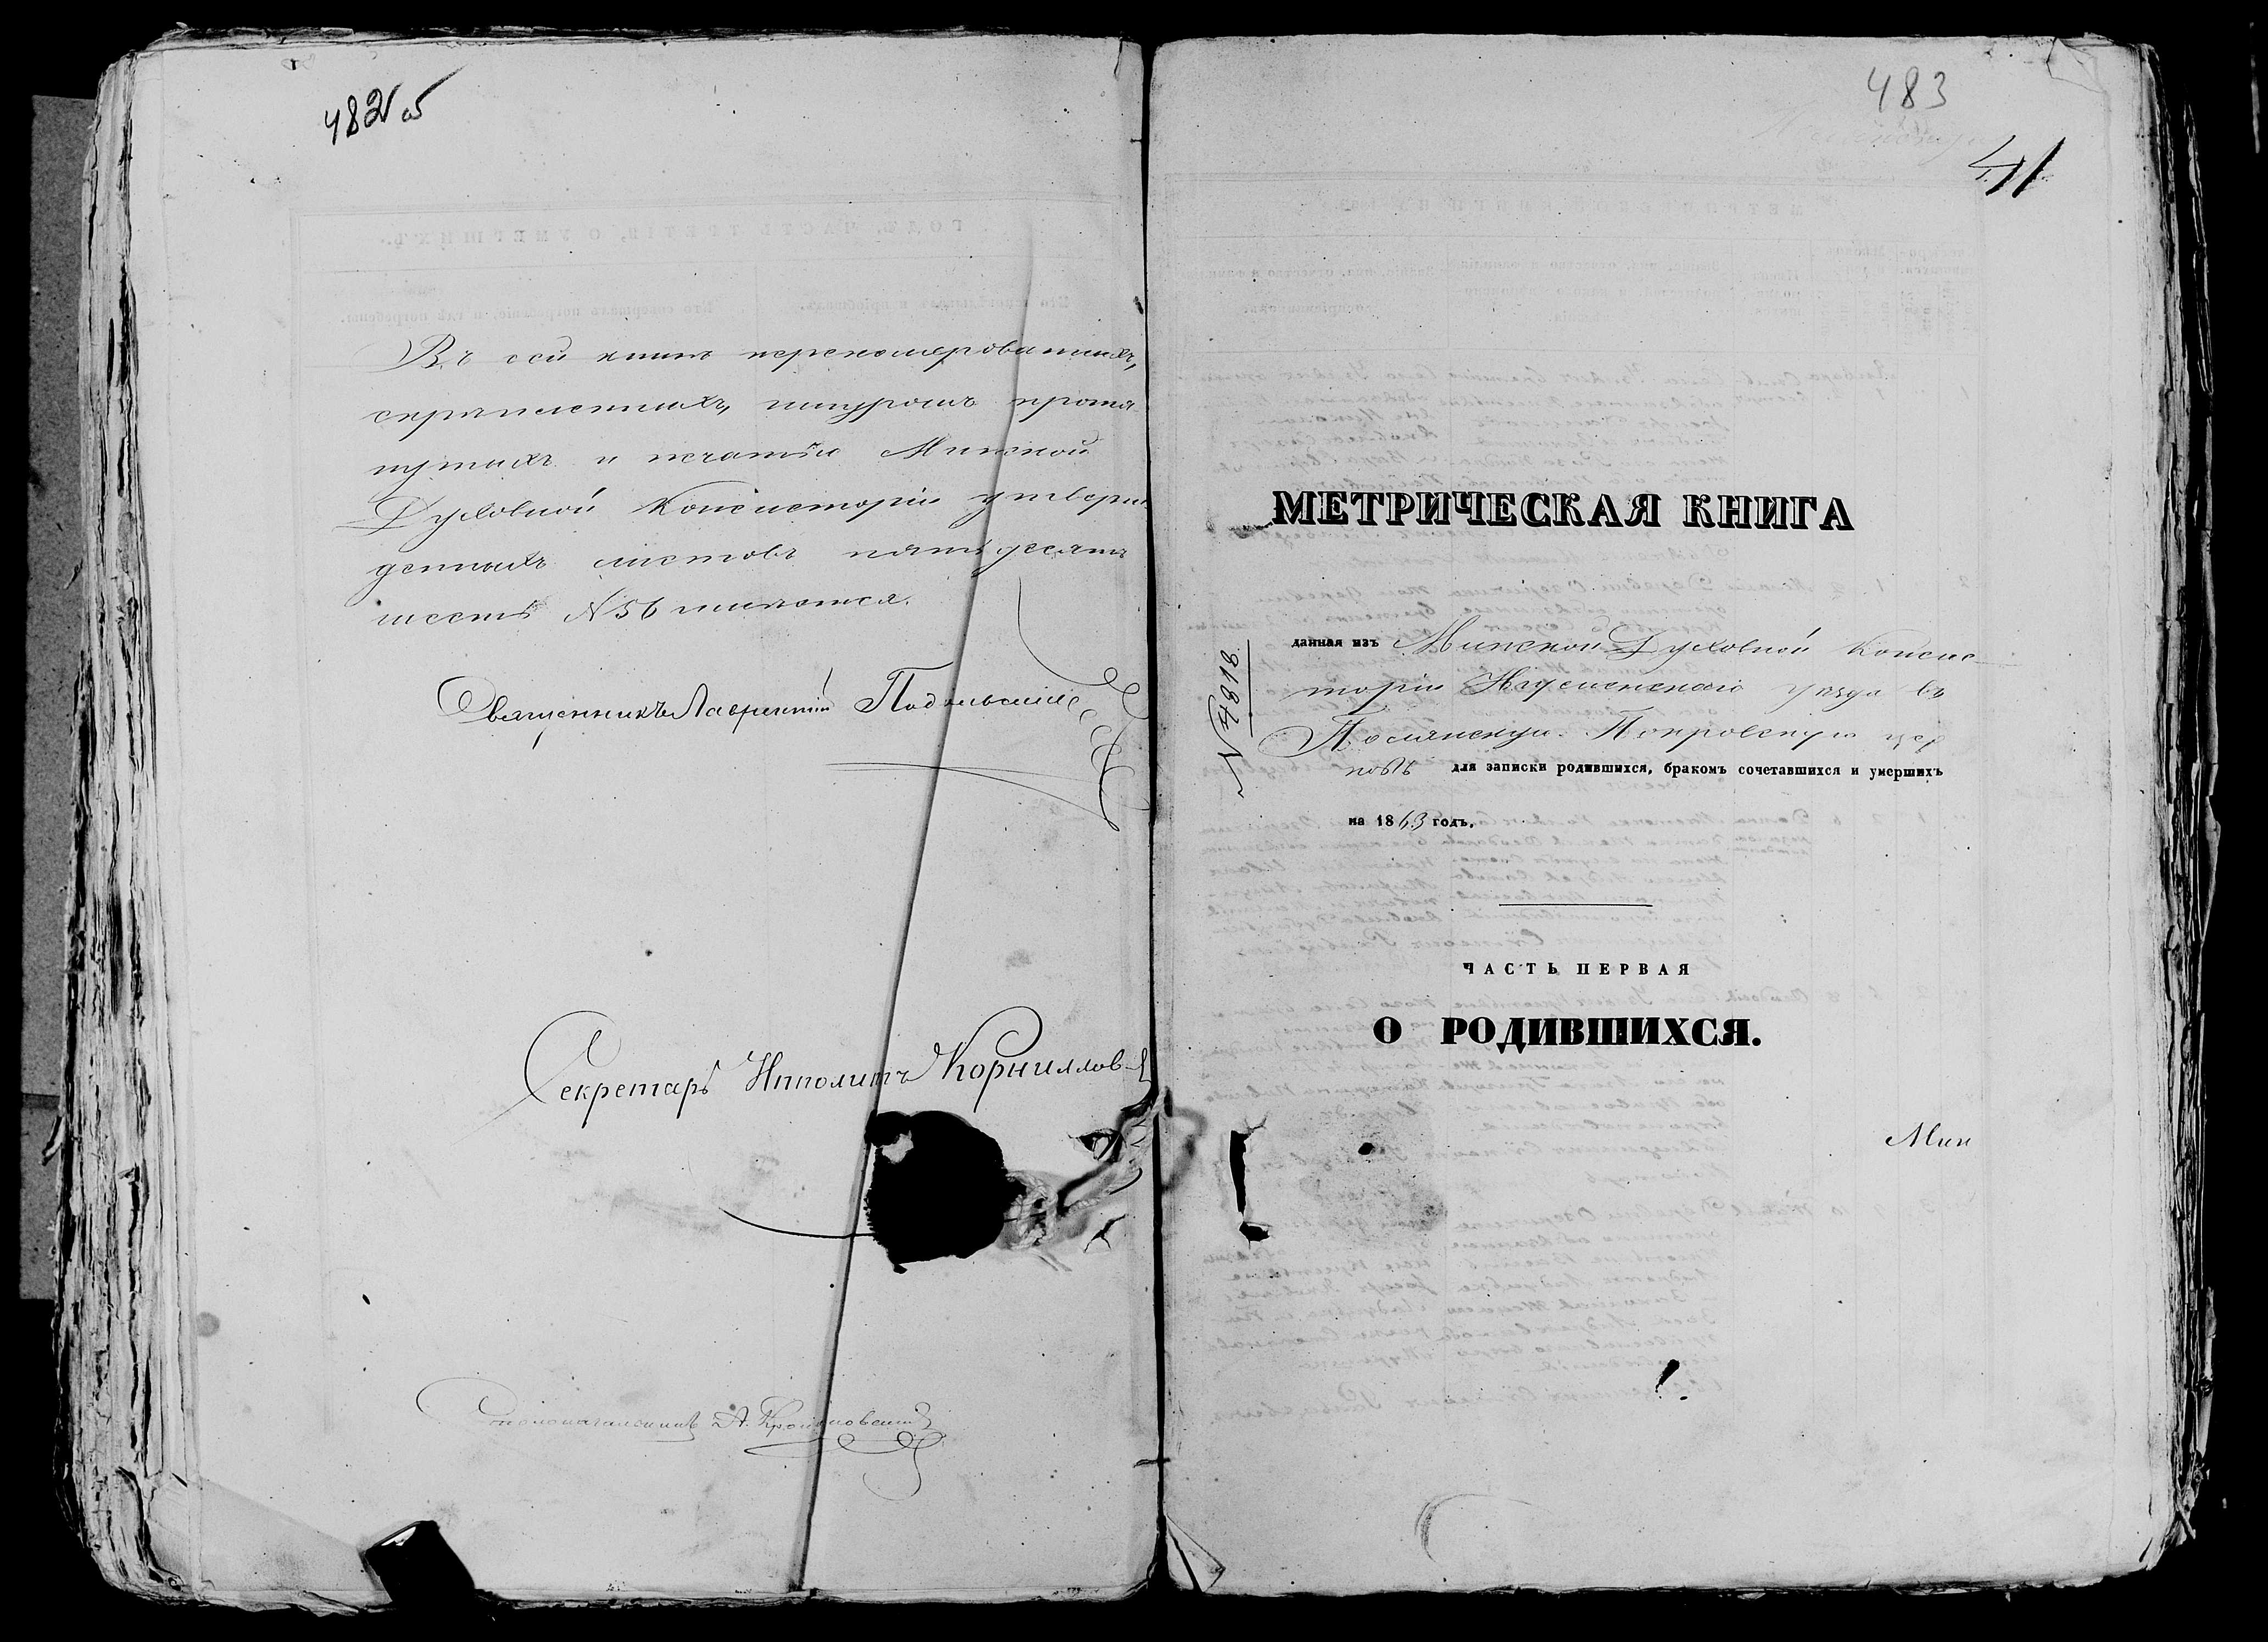 482 об
Въ сей книгѣ перенумерованныхъ,
скрѣпленныхъ, шнуромъ протя
нутыхъ и печатію Минской
Духовной Консисторіи утверж
денныхъ листовъ пятьдесятъ
шесть N 56 имѣется.
Священникъ Лаврентій
Секретарь Ипполитъ Корниллов
Столоначальникъ А.
483
41
МЕТРИЧЕСКАЯ КНИГА
N 4818
данная изъ Минской Духовной Консис
торіи Игуменскаго уѣзда въ
Покровскую цер
ковь для записки родившихся, бракомъ сочетавшихся и умершихъ
на 1863 годъ.
ЧАСТЬ ПЕРВАЯ
О РОДИВШИХСЯ.
Мин